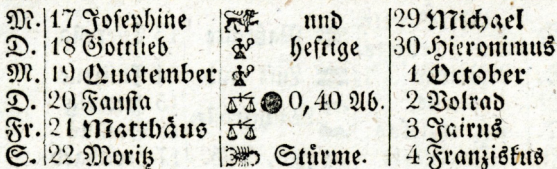 M. 17 Josephine und 29 Michael
D. 18 Gottlieb heftige 30 Hieronimus
M. 19 Quatember 1 October
D. 20 Fausta 0,40 Ab. 2 Volrad
Fr. 21 Matthäus 3 Jairus
S. 22 Moritz Stürme. 4 Franziskus